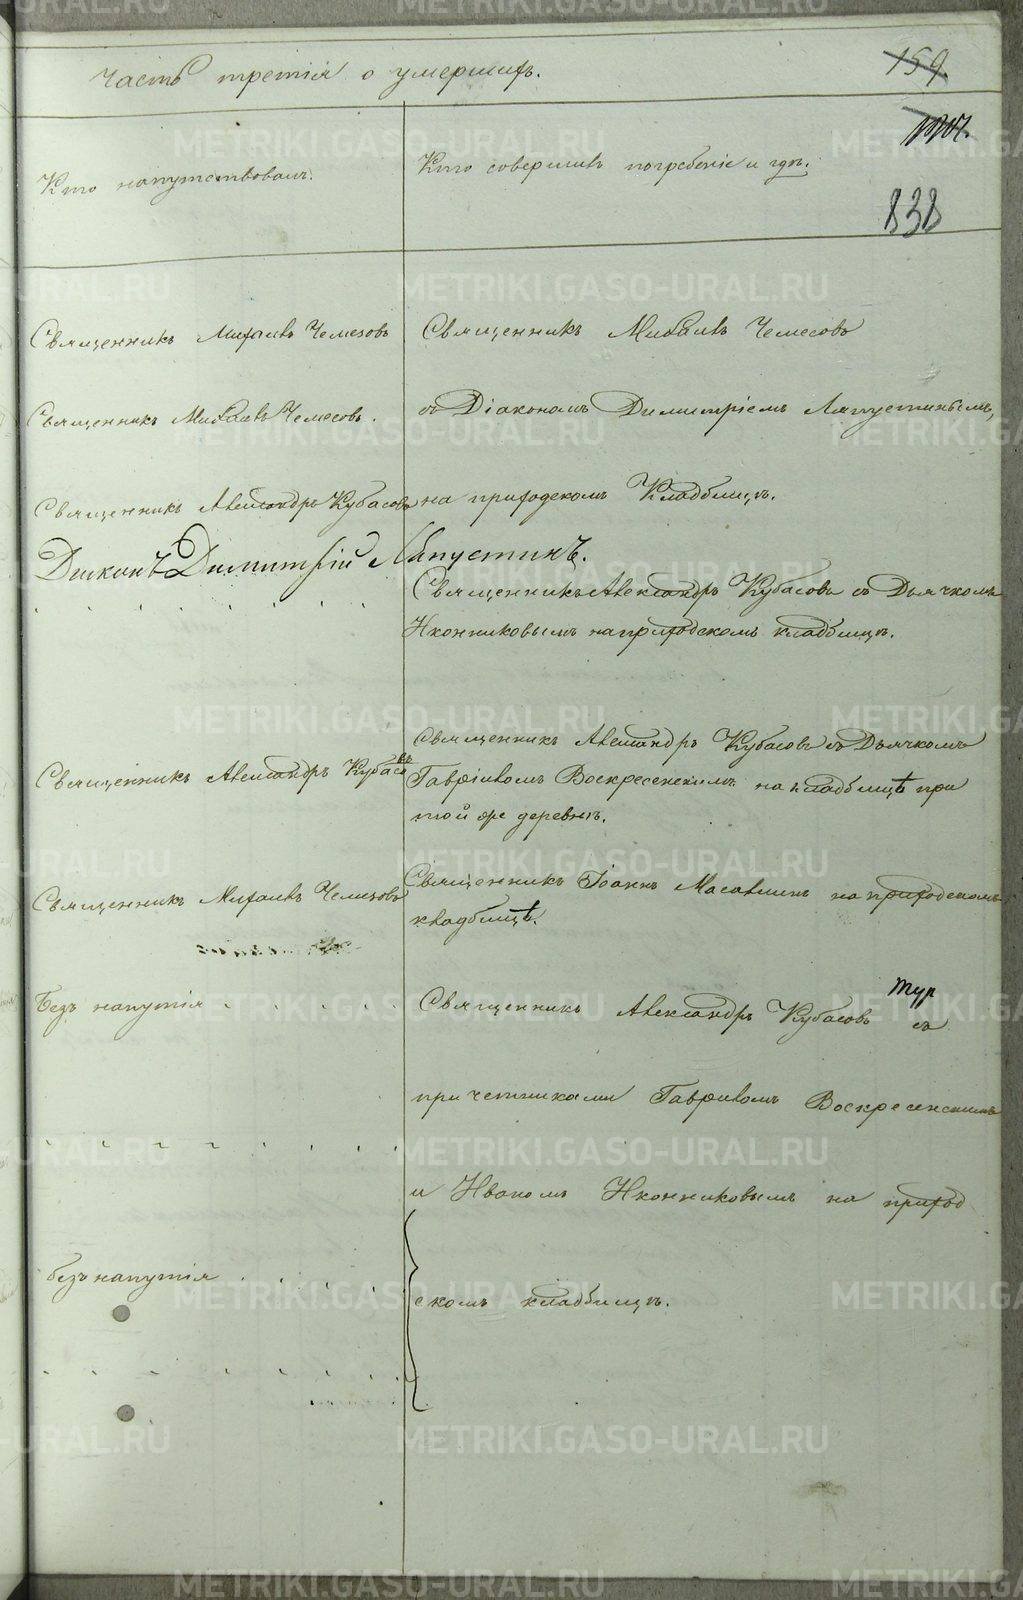 Часть третія о умершихъ.
159.
838
Кто напутствовалъ.
Кто совершилъ погребеніе и гдѣ.
Священникъ Михаилъ Чемезовъ
Священникъ Михаилъ Чемесовъ.
Священникъ Александръ Кубасовъ
Дьяконъ Димитрій Лапустинъ.
Священникъ Александръ Кубасовъ
Священникъ Михаилъ Чемезовъ
Безъ напутія
безъ напутія
Священникъ Михаилъ Чемесовъ
съ Діакономъ Димитріемъ Лапустинымъ,
на приходскомъ Кладбищѣ.
Священникъ Александръ Кубасовъ съ Дьячкомъ
Иконниковымъ на приходскомъ кладбищѣ.
Священникъ Александръ Кубасовъ съ Дьячкомъ
Гавріиломъ Воскресенскимъ на кладбищѣ при
той же деревнѣ.
Священникъ Іоаннъ на приходскомъ
кладбищѣ.
Священникъ Александръ Кубасовъ съ
причетниками Гавриломъ Воскресенскимъ
и Иваномъ Иконниковымъ на приход
скомъ кладбищѣ.
METRIKI.GASO-URAL.RU